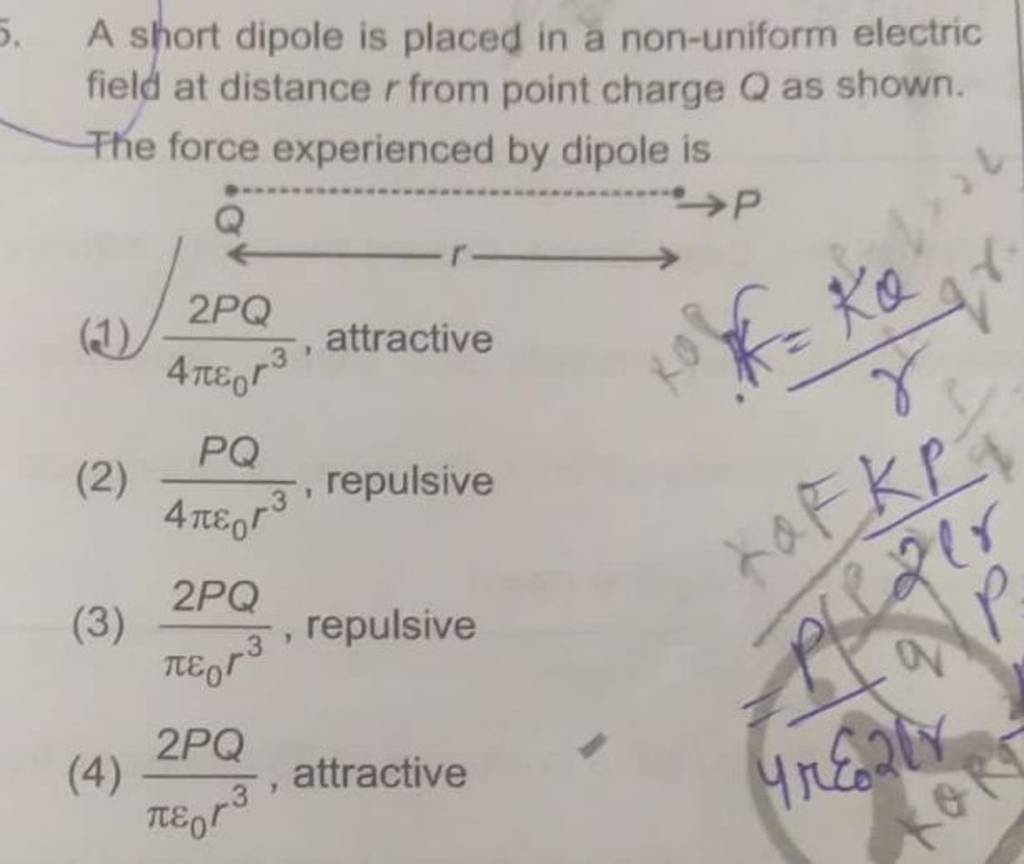 5. A short dipole is placed in a non-uniform electric
field at distance r from point charge Q as shown.
The force experienced by dipole is
Q r P
(1) 2PQ/4πε₀r³, attractive
(2) PQ/4πε₀r³, repulsive
(3) 2PQ/πε₀r³, repulsive
(4) 2PQ/πε₀r³, attractive
= KQ/r
KP/2lr
= P/4πε₀2lr